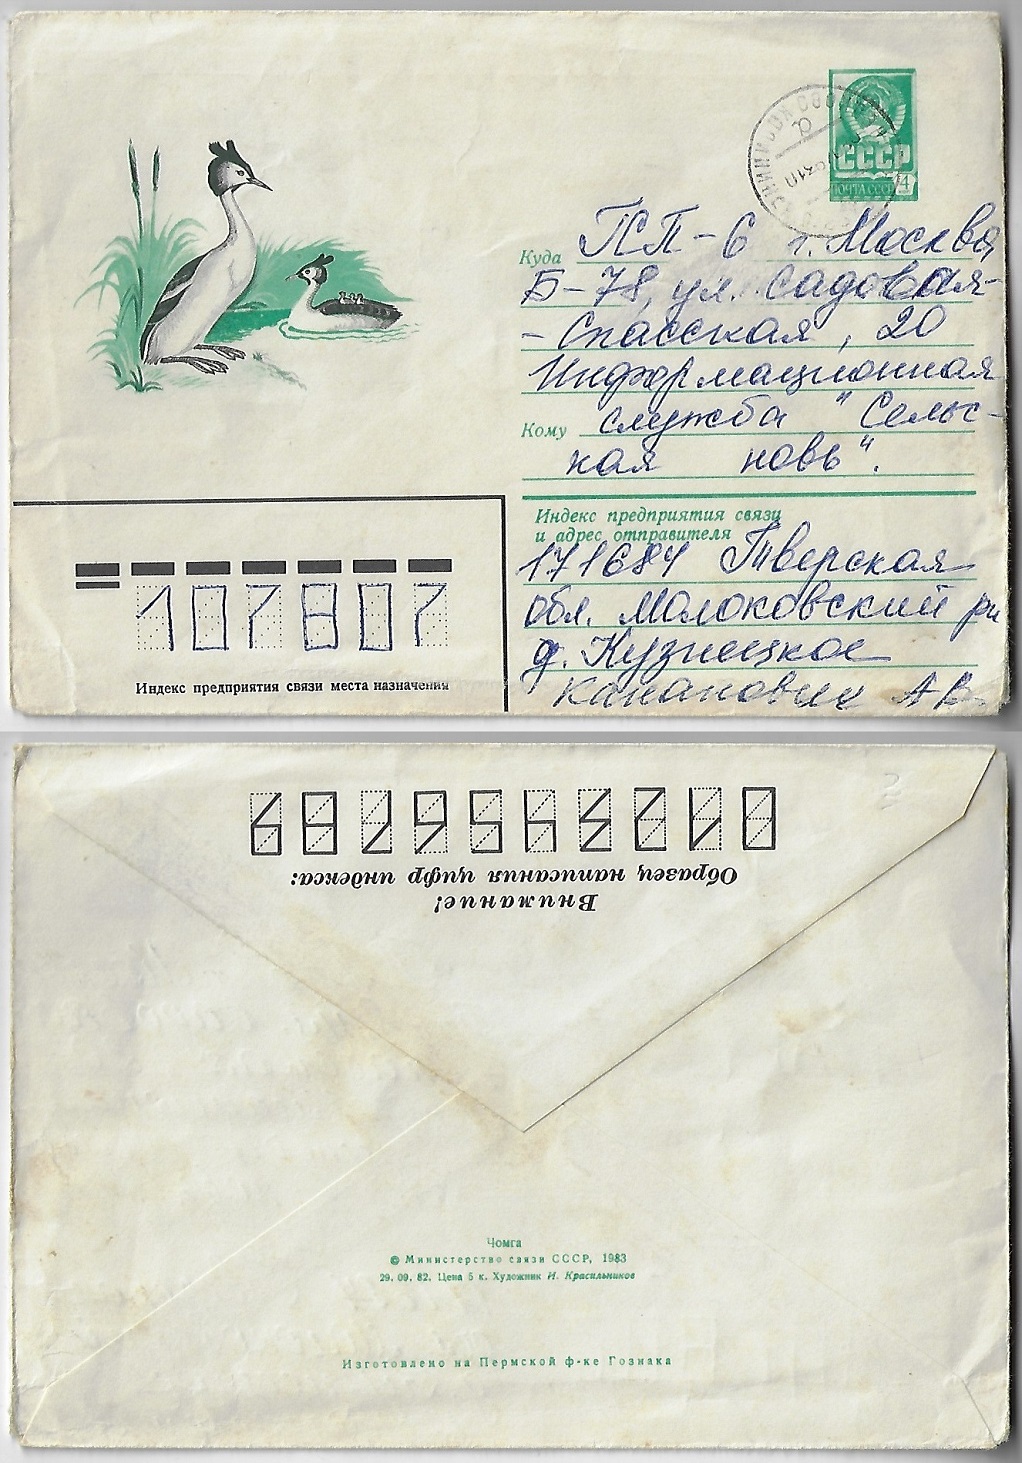 СССР
ПОЧТА СССР
4
Куда ПП-6 г. Москва
Б-78, ул. Садовая-
- Спасская, 20
Информационная
Кому служба "Сельс-
кая новь".
Индекс предприятия связи
и адрес отправителя
171684 Тверская
обл. Молоковский рн
д. Кузнецкое
Кананович А В
107807
Индекс предприятия связи места назначения
Внимание!
Образец написания цифр индекса:
0 1 2 3 4 5 6 7 8 9
Чомга
© Министерство связи СССР, 1983
29. 09. 82. Цена 5 к. Художник И. Красильников
Изготовлено на Пермской ф-ке Гознака